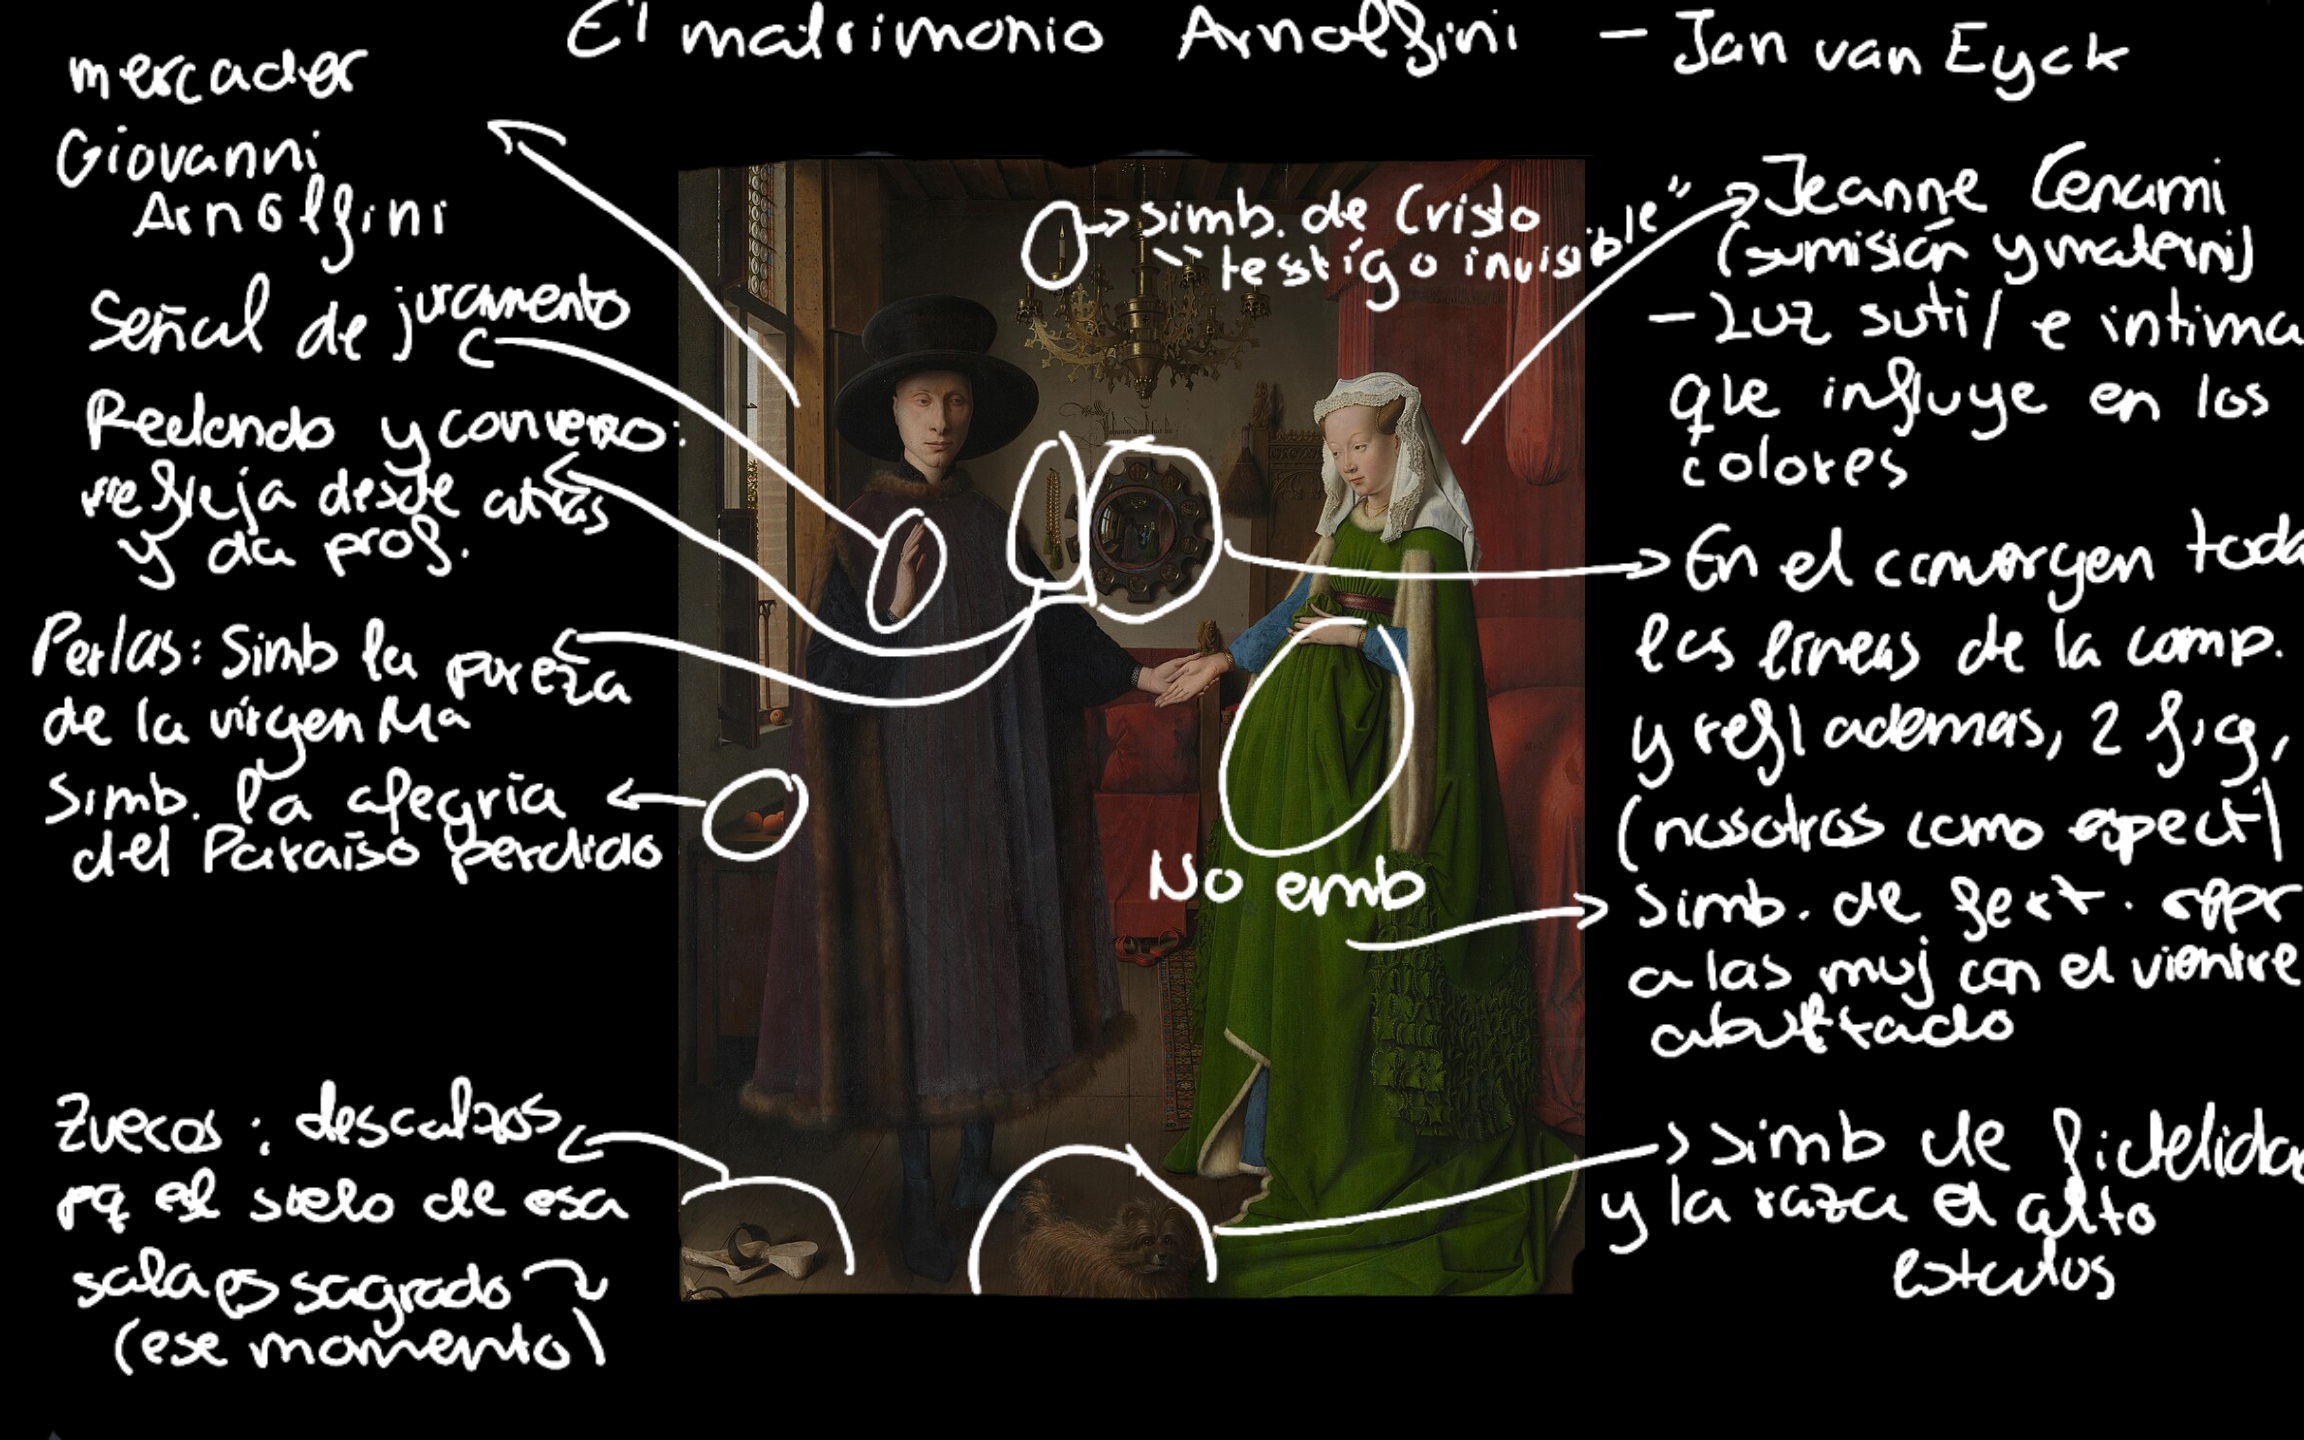 El matrimonio Arnolfini - Jan van Eyck
mercader
Giovanni
Arnolfini
Señal de juramento
Redondo y convexo:
refleja desde atrás
y da prof.
Perlas: Simb la pureza
de la virgen Mª
Simb. la alegria
del Paraiso perdido
Zuecos: descalzos
pq el suelo de esa
sala es sagrado
(ese momento)
simb. de Cristo
"testigo invisible"
No emb
Jeanne Cenami
(sumisión y materni)
- Luz sutil e intima
que influye en los
colores
En el convergen toda
las líneas de la comp.
y refl ademas, 2 fig,
(nosotros como espect)
simb. de fert. repr
a las muj con el vientre
abultado
simb de fidelidad
y la raza el alto
estatus